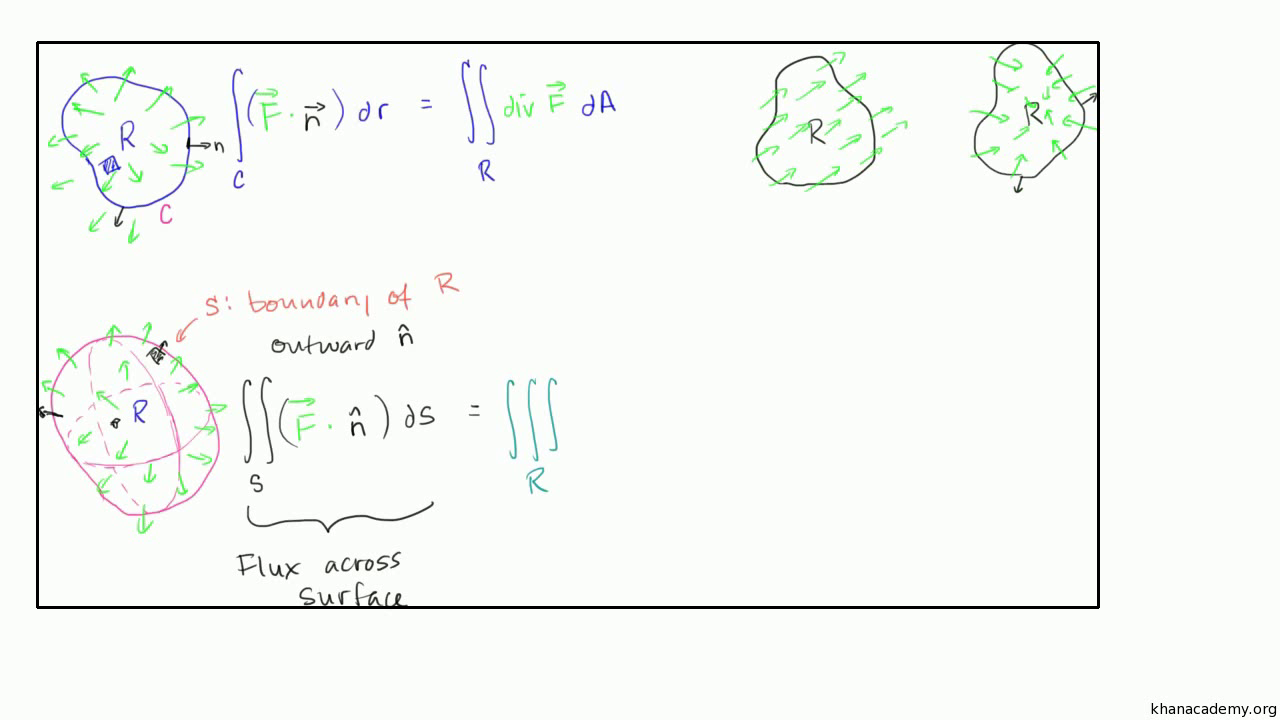 R
n
C
∫ (F⃗ · n⃗) dr = ∬ div F⃗ dA
C
R
R
R
S: boundary of R
outward n̂
R
∬ (F⃗ · n̂) ds = ∭
S
R
Flux across
surface
khanacademy.org